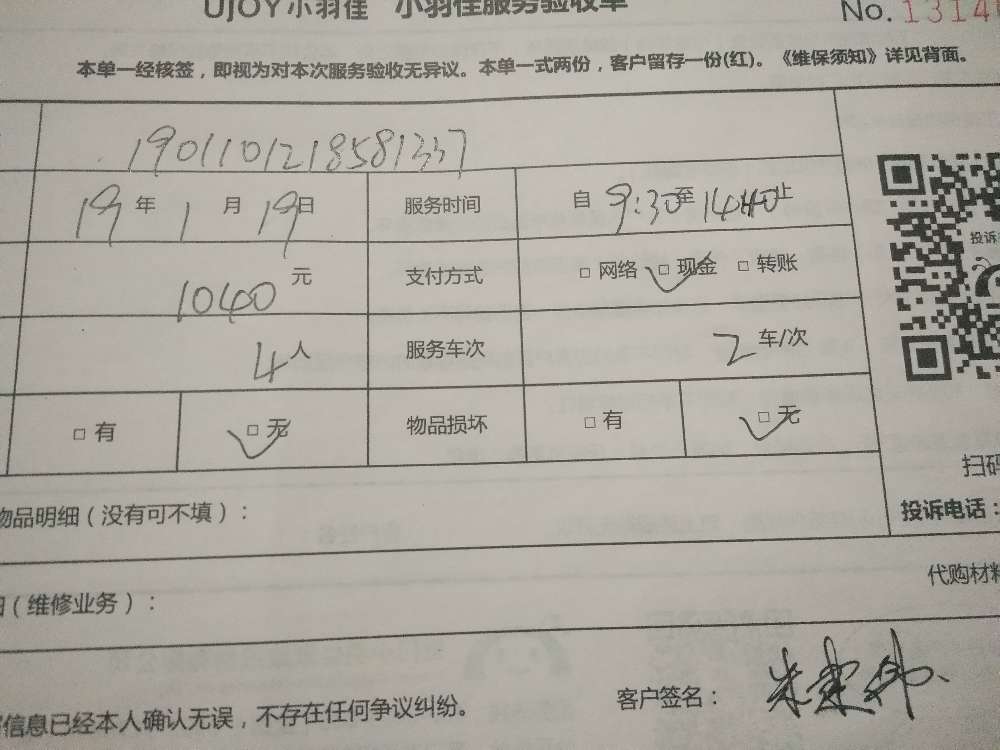 UJOY小羽佳 小羽佳服务验收单
No. 1314
本单一经核签，即视为对本次服务验收无异议。本单一式两份，客户留存一份(红)。《维保须知》详见背面。
1901101218581337
19年1月19日 服务时间 自9:30至14:40止
1040元 支付方式 □网络 □现金 □转账
投诉
4人 服务车次 2车/次
□有 □无 物品损坏 □有 □无
扫码
物品明细（没有可不填）： 投诉电话：
（维修业务）： 代购材料
信息已经本人确认无误，不存在任何争议纠纷。 客户签名：朱建